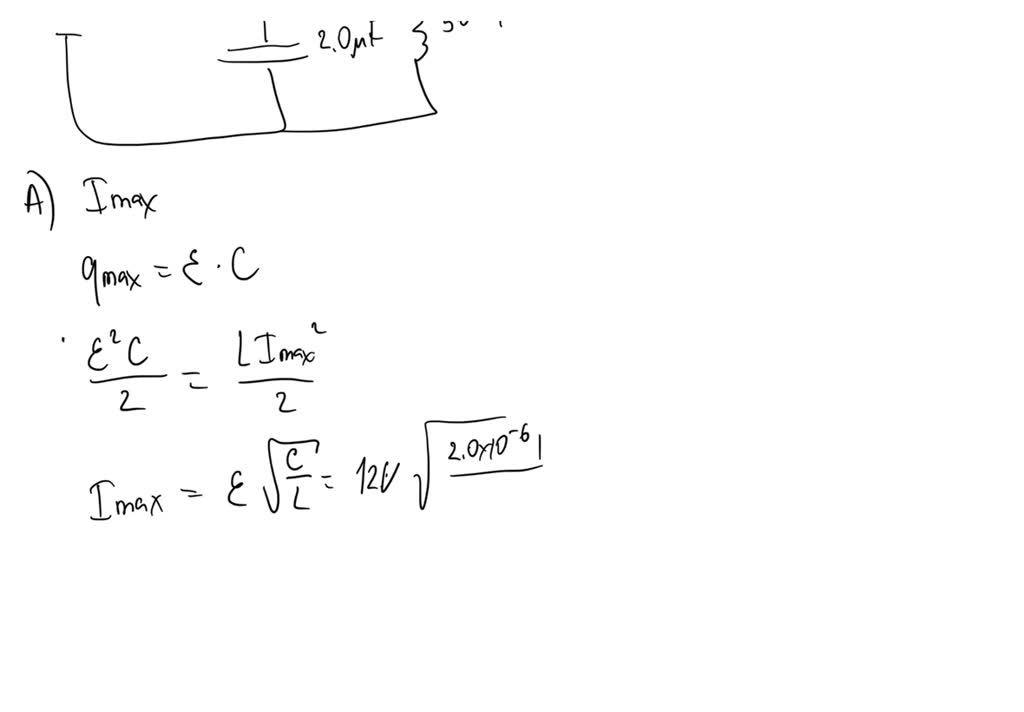 2.0μF
A) Imax
qmax = ε · C
ε²C / 2 = L Imax² / 2
Imax = ε √(C/L) = 12V √(2.0x10⁻⁶